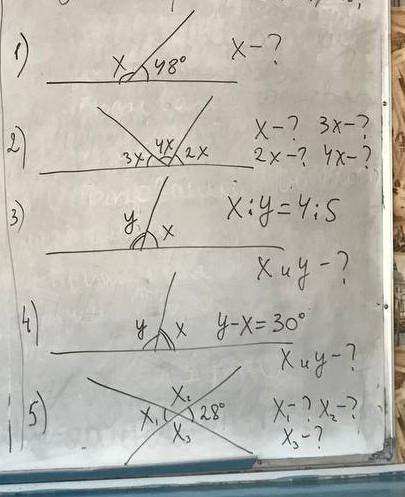 1) x 48° x-?
2) 3x 4x 2x x-? 3x-?
2x-? 4x-?
3) y x x:y=4:5
x и y-?
4) y x y-x=30°
x и y-?
5) x₁ x₂ 28° x₃ x₁-? x₂-?
x₃-?